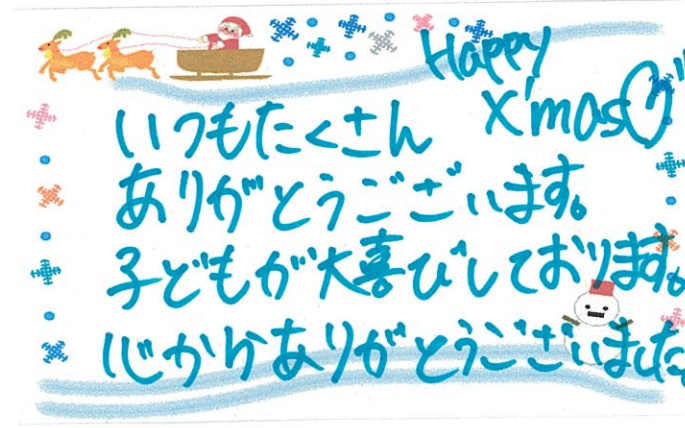 Happy
X'mas♡
いつもたくさん
ありがとうございます。
子どもが大喜びしております。
心からありがとうございました。